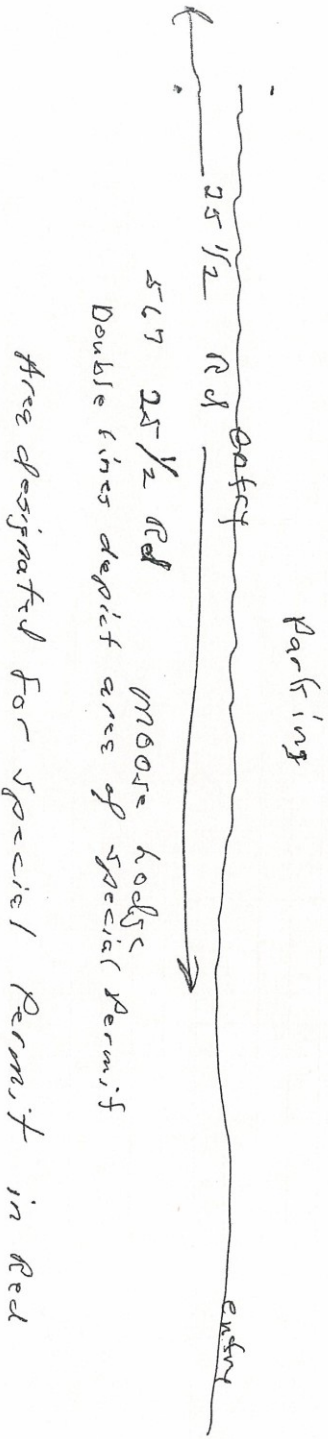 Parking
entry
entry
25 1/2 Rd
567 25 1/2 Rd Moose Lodge
Double lines depict area of special Permit
Area designated for special Permit in Red